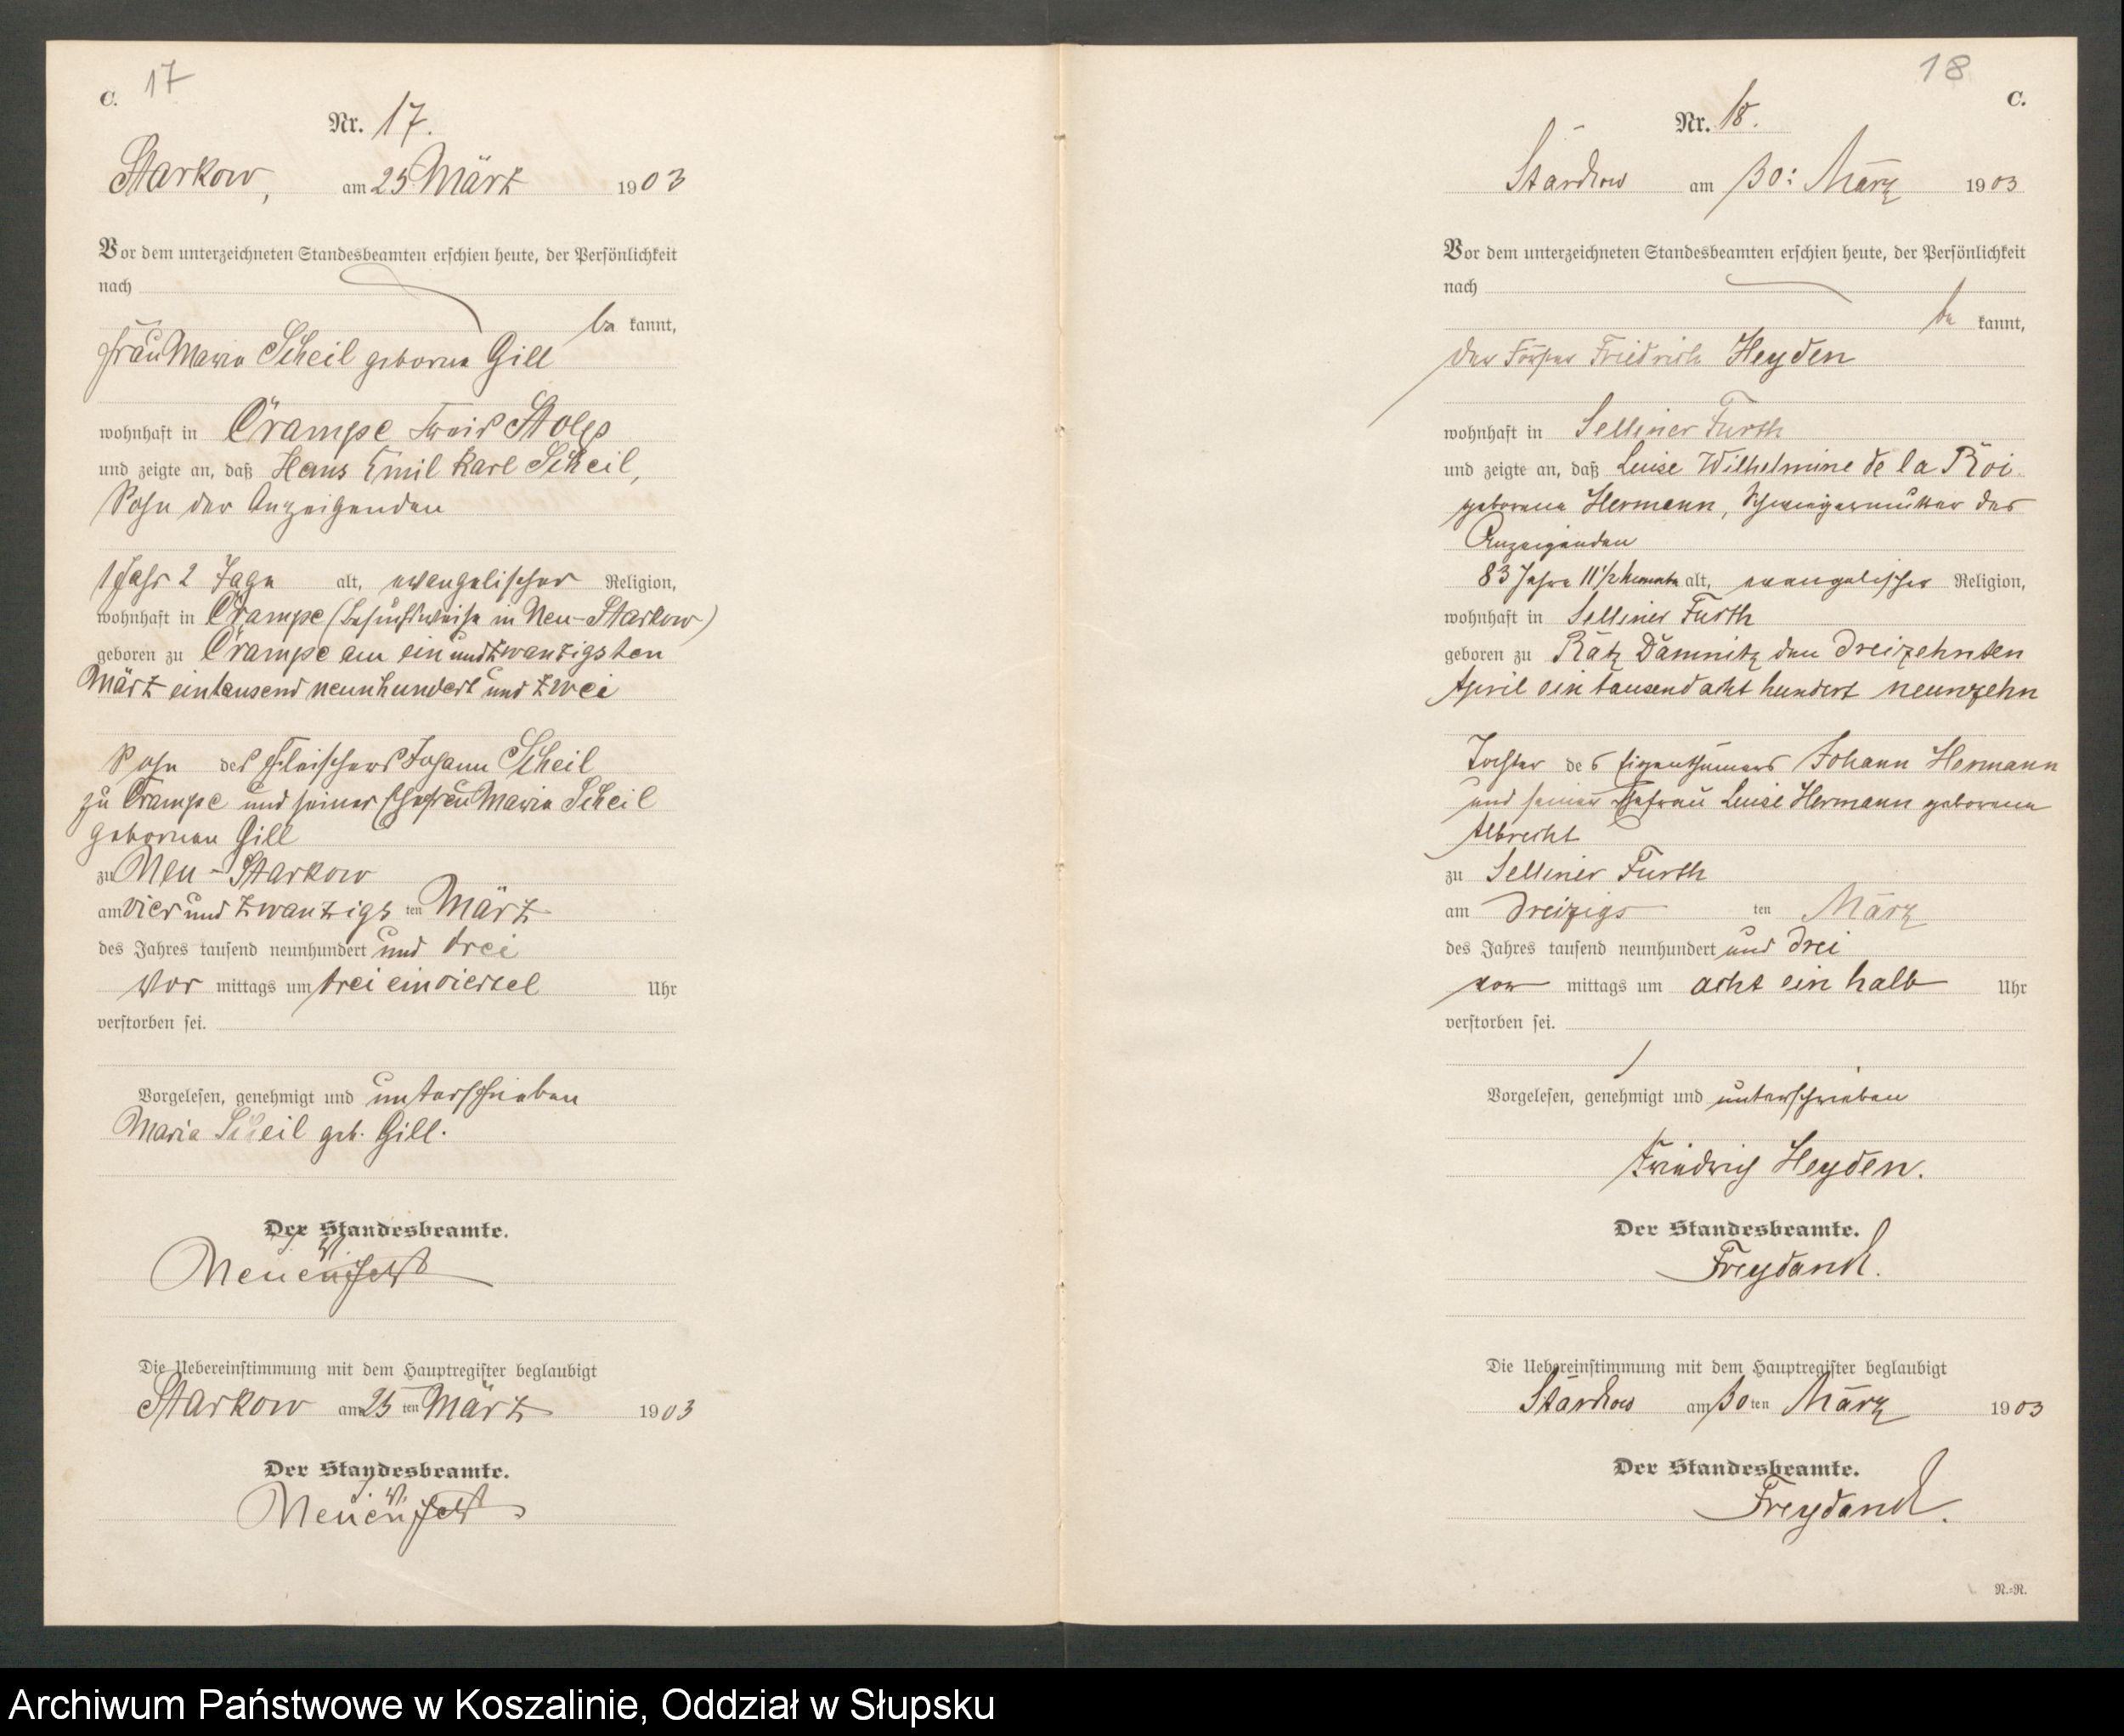 C. 17
Nr. 17.
Starkow, am 25 März 1903
Vor dem unterzeichneten Standesbeamten erschien heute, der Persönlichkeit
nach
be kannt,
Frau Maria Scheil geborne Gill
wohnhaft in Crampe Kreis Stolp
und zeigte an, daß Hans Emil Karl Scheil,
Sohn der Anzeigenden
1 Jahr 2 Tage alt, evangelischer Religion,
wohnhaft in Crampe (besuchsweise in Neu-Starkow)
geboren zu Crampe am ein und zwanzigsten
März eintausend neunhundert und zwei
Sohn des Fleischers Johann Scheil
zu Crampe und seiner Ehefrau Maria Scheil
gebornen Gill
zu Neu-Starkow
am vier und zwanzigs ten März
des Jahres tausend neunhundert und drei
Vor mittags um drei einviertel Uhr
verstorben sei.
Vorgelesen, genehmigt und unterschrieben
Maria Scheil geb. Gill.
Der Standesbeamte.
Die Uebereinstimmung mit dem Hauptregister beglaubigt
Starkow am 25 ten März 1903
Der Standesbeamte.
18
C.
Nr. 18.
Starkow am 30: März 1903
Vor dem unterzeichneten Standesbeamten erschien heute, der Persönlichkeit
nach
be kannt,
der Friedrich Heyden
wohnhaft in Selliner Furth
und zeigte an, daß Luise Wilhelmine de la Roi
geborene Hermann, Schwiegermutter des
Anzeigenden
83 Jahre 11 1/2 Monate alt, evangelischer Religion,
wohnhaft in Selliner Furth
geboren zu Ratz Damnitz den dreizehnten
April ein tausend acht hundert neunzehn
Tochter des Eigenthümers Johann Hermann
und seiner Ehefrau Luise Hermann geborene
Albrecht
zu Selliner Furth
am dreizigs ten März
des Jahres tausend neunhundert und drei
vor mittags um acht ein halb Uhr
verstorben sei.
Vorgelesen, genehmigt und unterschrieben
Friedrich Heyden.
Der Standesbeamte.
Freydanck.
Die Uebereinstimmung mit dem Hauptregister beglaubigt
Starkow am 30 ten März 1903
Der Standesbeamte.
Freydanck.
N.=N.
Archiwum Państwowe w Koszalinie, Oddział w Słupsku